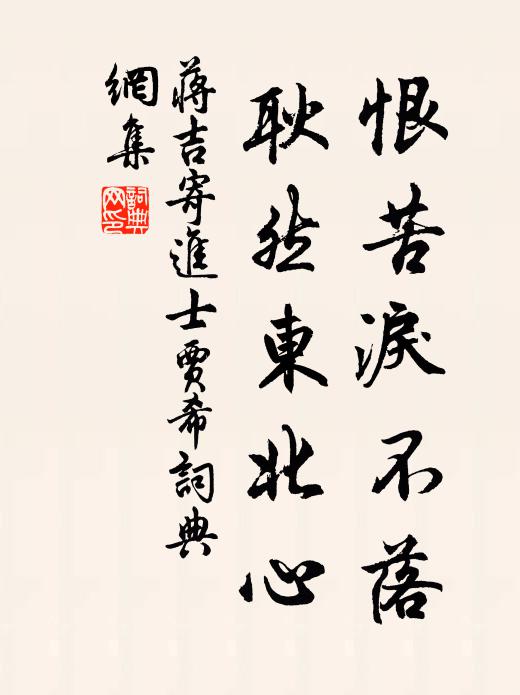 恨苦淚不落
耿然東北心
蔣吉寄進士賈希詞典
網集
詞典網印